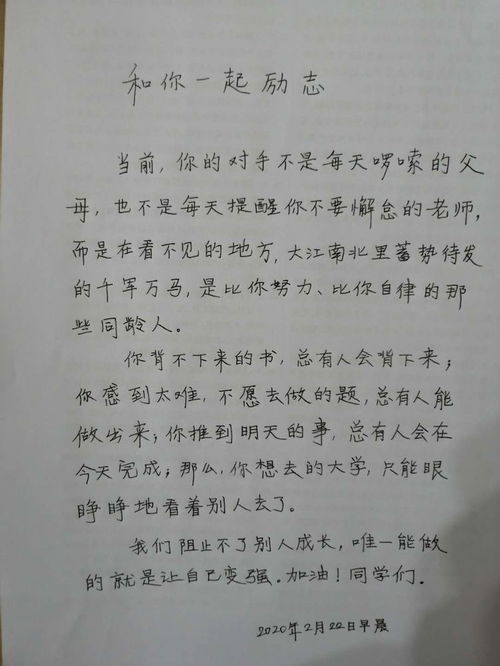 和你一起励志
当前,你的对手不是每天啰嗦的父
母,也不是每天提醒你不要懈怠的老师,
而是在看不见的地方,大江南北里蓄势待发
的千军万马,是比你努力、比你自律的那
些同龄人。
你背不下来的书,总有人会背下来;
你感到太难,不愿去做的题,总有人能
做出来;你推到明天的事,总有人会在
今天完成;那么,你想去的大学,只能眼
睁睁地看着别人去了。
我们阻止不了别人成长,唯一能做
的就是让自己变强。加油!同学们.
2020年2月22日早晨